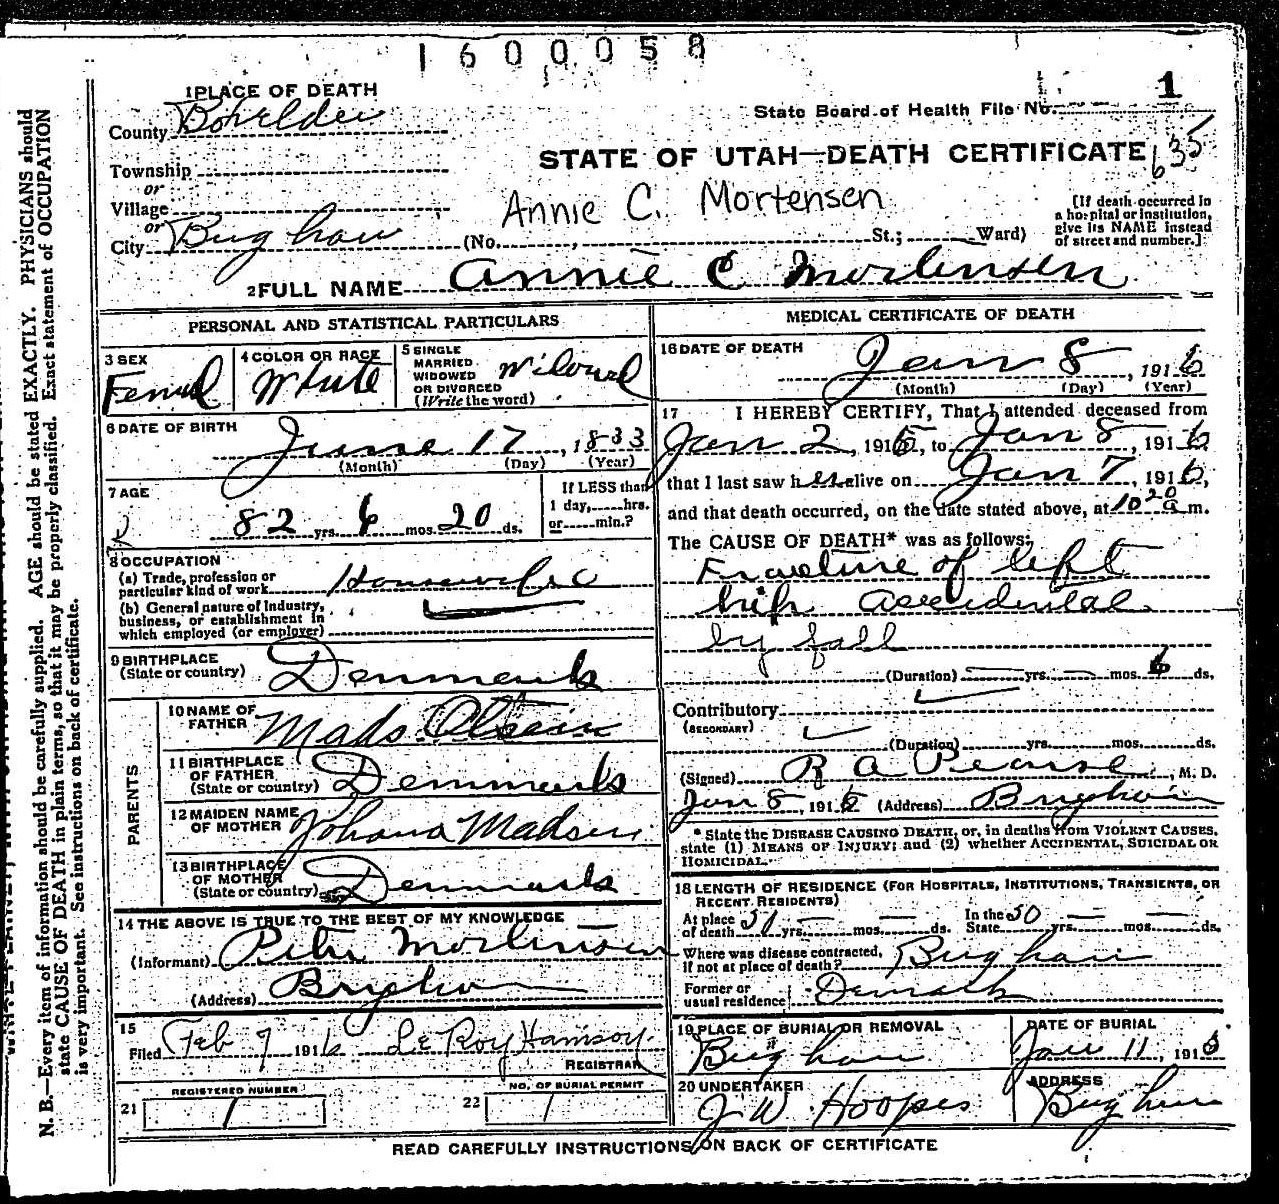 1600058
1 PLACE OF DEATH
County Boxelder
State Board of Health File No. 1
Township
or
STATE OF UTAH—DEATH CERTIFICATE 635
Village
or
Annie C. Mortensen
City Brigham (No. , St.; Ward)
[If death occurred in
a hospital or institution,
give its NAME instead
of street and number.]
2 FULL NAME Annie C Mortensen
PERSONAL AND STATISTICAL PARTICULARS
3 SEX
Femal
4 COLOR OR RACE
White
5 SINGLE
MARRIED
WIDOWED
OR DIVORCED
(Write the word)
Widowed
6 DATE OF BIRTH
June 17, 1833
(Month) (Day) (Year)
7 AGE
82 yrs. 6 mos. 20 ds.
If LESS than
1 day, hrs.
or min.?
8 OCCUPATION
(a) Trade, profession or
particular kind of work Housewife
(b) General nature of Industry,
business, or establishment in
which employed (or employer)
9 BIRTHPLACE
(State or country) Denmark
PARENTS
10 NAME OF
FATHER Mads
11 BIRTHPLACE
OF FATHER
(State or country) Denmark
12 MAIDEN NAME
OF MOTHER Johana Madsen
13 BIRTHPLACE
OF MOTHER
(State or country) Denmark
14 THE ABOVE IS TRUE TO THE BEST OF MY KNOWLEDGE
(Informant) Peter Mortensen
(Address) Brigham
15
Filed Feb 7 1916 Le Roy
REGISTRAR
REGISTERED NUMBER
21 1
NO. OF BURIAL PERMIT
22 1
MEDICAL CERTIFICATE OF DEATH
16 DATE OF DEATH
Jan 8, 1916
(Month) (Day) (Year)
17 I HEREBY CERTIFY, That I attended deceased from
Jan 2, 1916, to Jan 8, 1916
that I last saw h er alive on Jan 7, 1916,
and that death occurred, on the date stated above, at 10 20 a m.
The CAUSE OF DEATH* was as follows:
Fracture of left
hip accidental
by fall
(Duration) yrs. mos. 6 ds.
Contributory
(SECONDARY)
(Duration) yrs. mos. ds.
(Signed) R A Pearse, M. D.
Jan 8, 1916 (Address) Brigham
* State the DISEASE CAUSING DEATH, or, in deaths from VIOLENT CAUSES,
state (1) MEANS OF INJURY; and (2) whether ACCIDENTAL, SUICIDAL OR
HOMICIDAL.
18 LENGTH OF RESIDENCE (FOR HOSPITALS, INSTITUTIONS, TRANSIENTS, OR
RECENT RESIDENTS)
At place
of death 50 yrs. mos. ds.
In the
State 50 yrs. mos. ds.
Where was disease contracted,
if not at place of death? Brigham
Former or
usual residence Denmark
19 PLACE OF BURIAL OR REMOVAL
Brigham
DATE OF BURIAL
Jan 11, 1916
20 UNDERTAKER
J W Hoopes
ADDRESS
Brigham
READ CAREFULLY INSTRUCTIONS ON BACK OF CERTIFICATE
N. B.—Every item of information should be carefully supplied. AGE should be stated EXACTLY. PHYSICIANS should
state CAUSE OF DEATH in plain terms, so that it may be properly classified. Exact statement of OCCUPATION
is very important. See instructions on back of certificate.